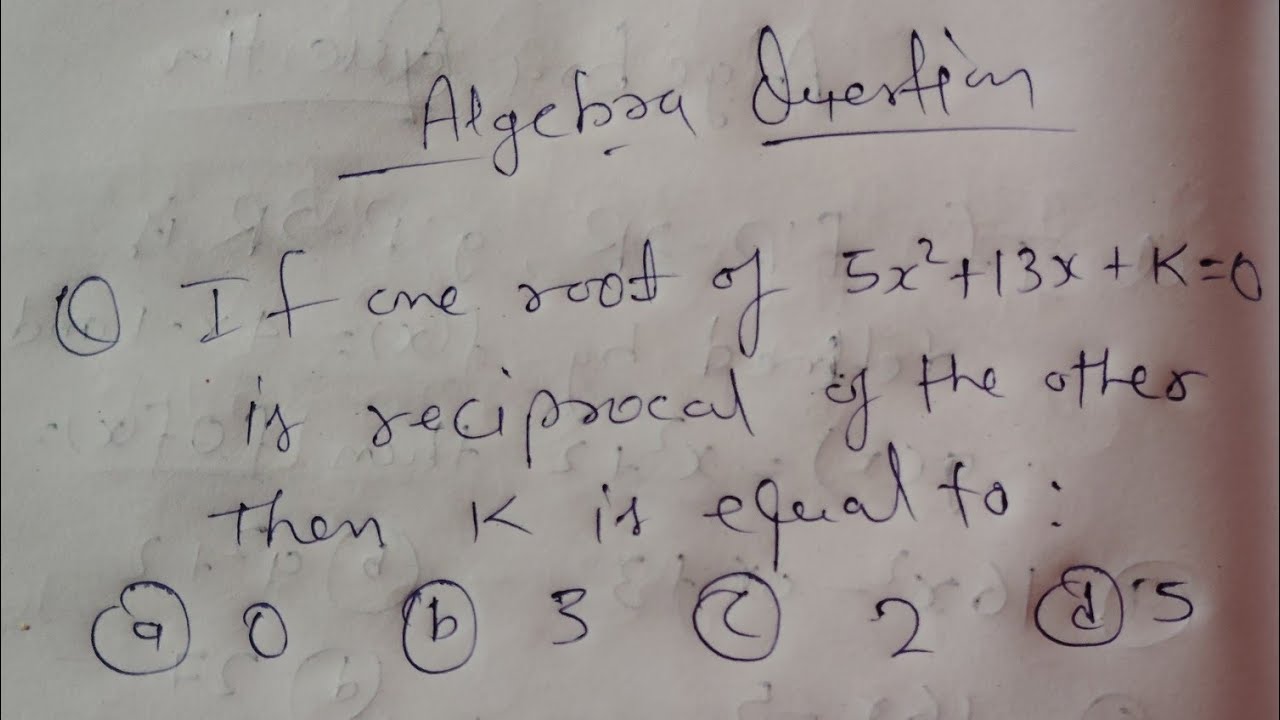 Algebra Question
Q If one root of 5x²+13x+K=0
is reciprocal of the other
then K is equal to:
a 0 b 3 c 2 d 5